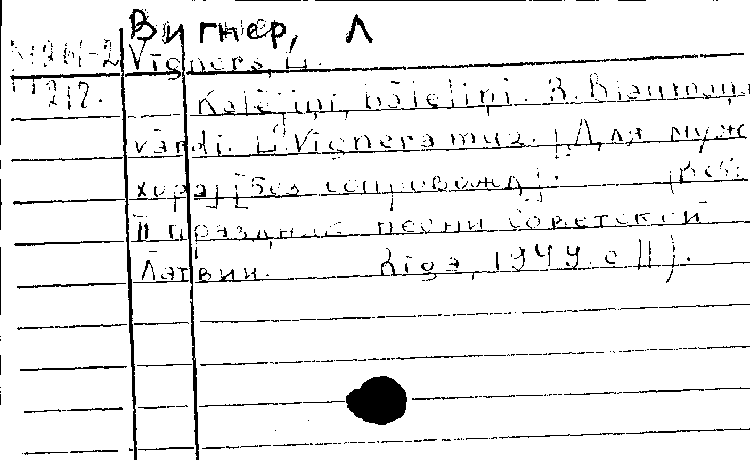 Вигнер, Л
М261-2 Vīgners, L.
212. Kalējiņi, bāleliņi. R. Blaumaņa
vārdi. L. Vīgnera muz. [Для муж
хора] [без сопровожд].
II праздник песни Советской
Латвии. Rīga, 1949. с 11).